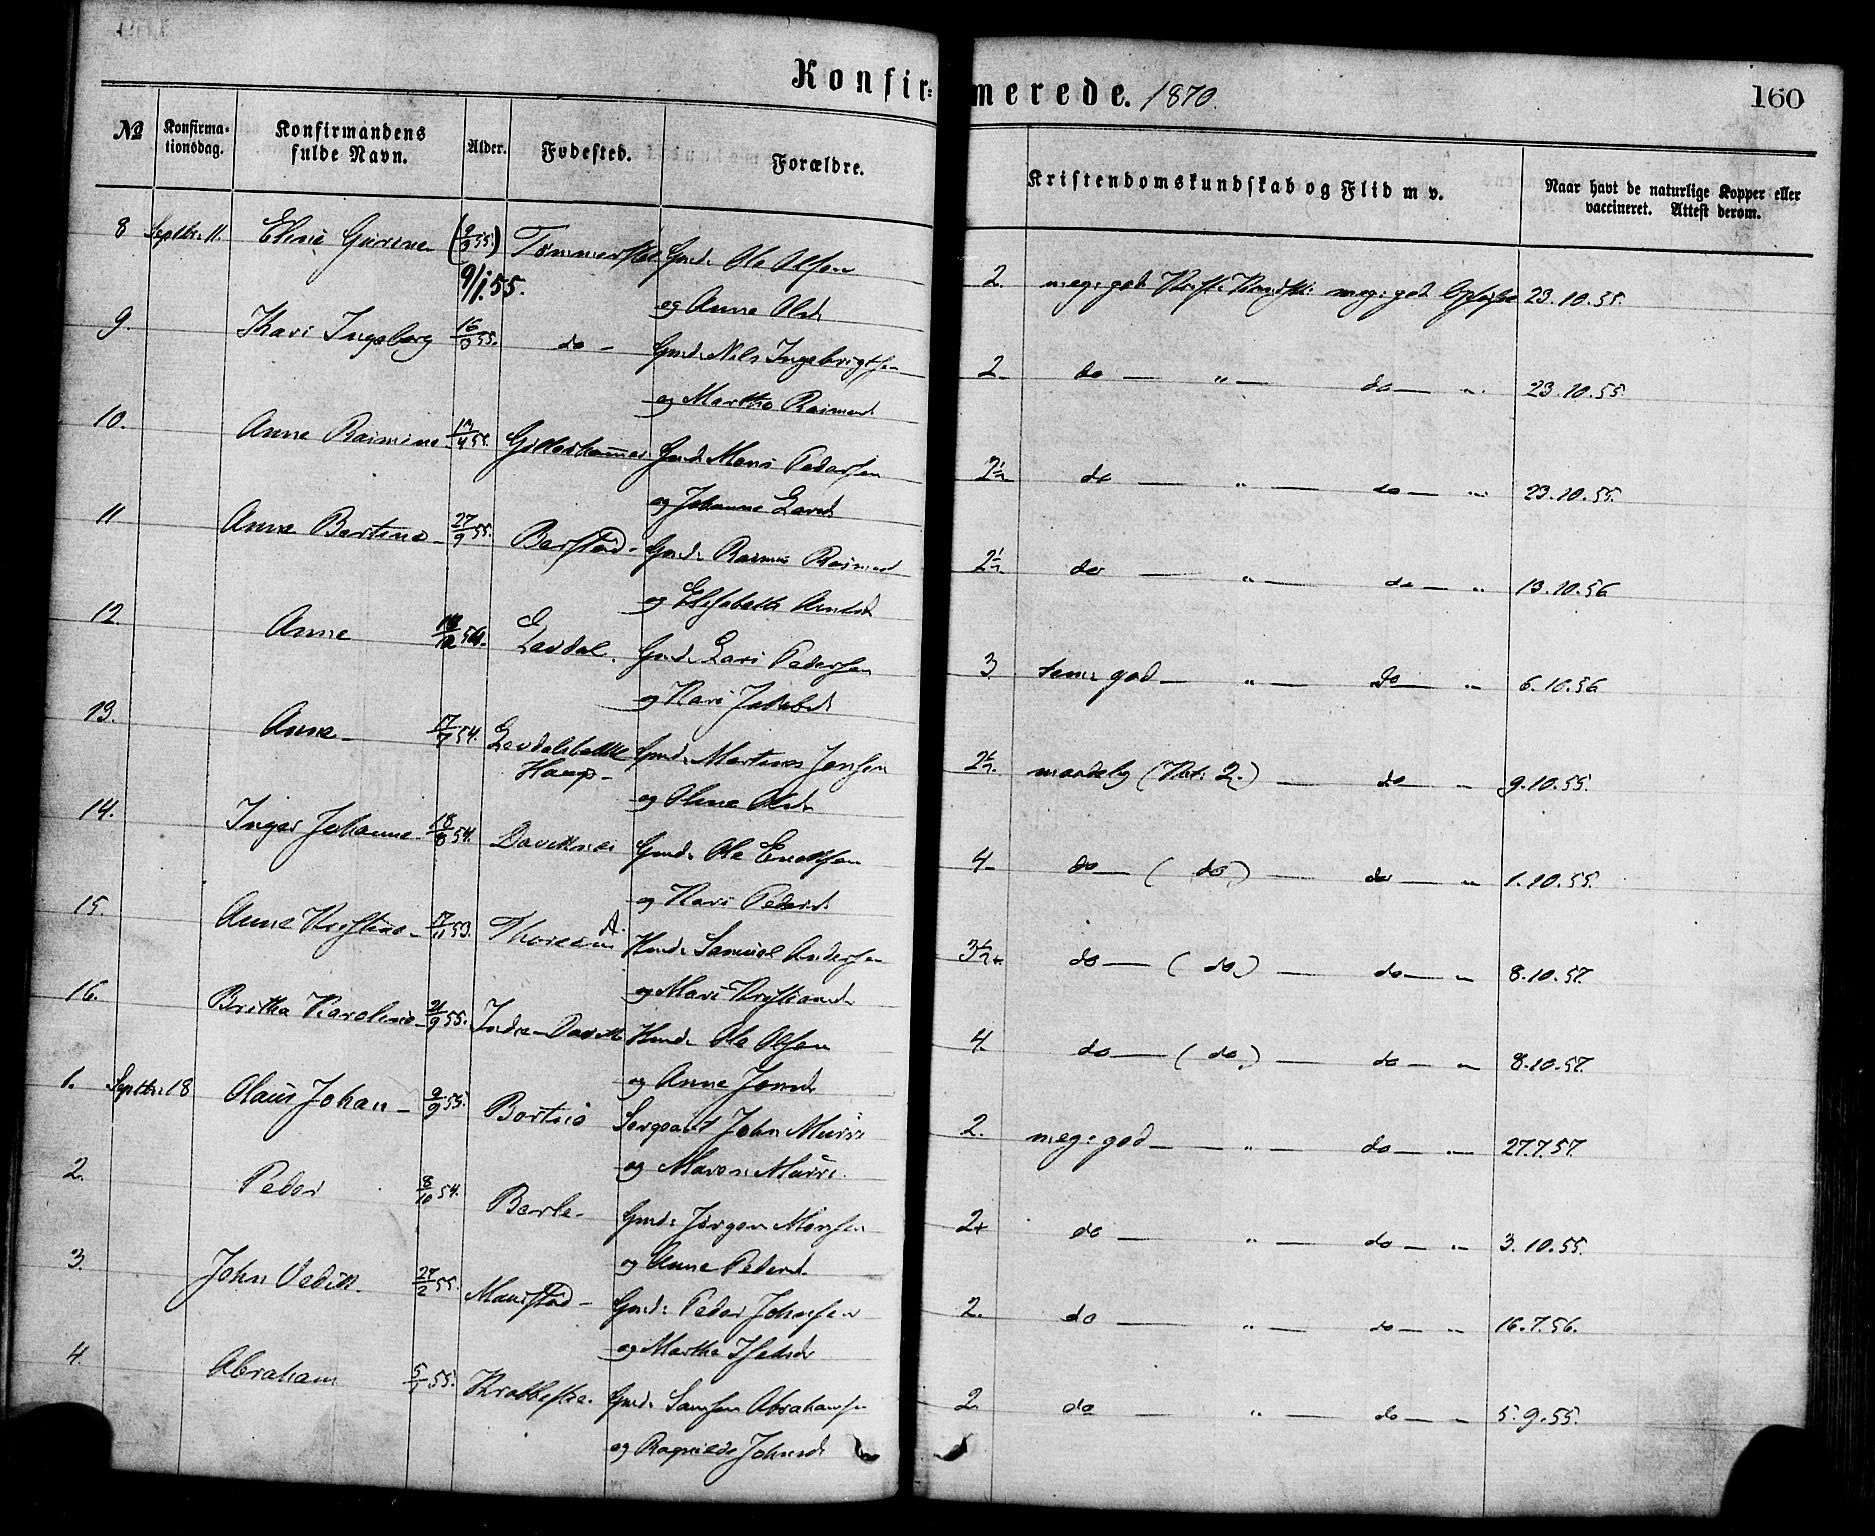 Konfir=merede. 1870. 160
№ Konfirma-tionsdag. Konfirmandens fulde Navn. Alder. Fødested. Forældre. Kristendomskundskab og Flid m v. Naar havt de naturlige Kopper eller vaccineret. Attest derom.
8 Septbr. 11. Eline Gurine (2/3 55.) Gmd. Ole Olsen 2. meg: god 23.10.55.
9/1 55. og Anne Olsd.
9. Kari Ingeborg 16/3 55. do - Gmd. Nels Ingebrigtsen 2. do — " — do — " 23.10.55
og Marthe Rasmusd.
10. Anne Rasmine Gmd. Mons Pedersen 2½ do — " — do — " 23.10.55.
og Johanne Larsd.
11 Anne Bertine - 27/9 55. Berstad - Gmd. Rasmus Rasmus 2½ do — " — do — " 13.10.56
og Elisabeth
12 Anne Levdal. Gmd. Lars Pedersen 3 tem: god — " — do — " 6.10.56
og Kari Jakobsd.
13. Anne - 54. Levdalsbakke Gmd. Martinus Jensen 2½. maadelig ( 2.) — do — " 9.10.55.
Haugs- og Oline Olsd.
14. Inger Johanne - 18/8 54. Daviknes Gmd. Ole 4- do — ( do ) — do — " 1.10.55.
og Kari Pedersd.
15. Anne Kristine - 17/11 53. Hmd. Samuel Andersen 3½+ do — ( do ) — do — " 8.10.57.
og Mari Kristiansd.
16. Britha Karoline - 55. Indre-Davik Hmd. Ole Olsen 4. do — ( do ) — do — " 8.10.57.
og Anne Jonsd.
1. Septbr: 18 Olaus Johan - 2/9 55. Bortne Sergeant John Muri 2. meg: god — " — do — " 27.7.57.
og Maren Muri.
2. Peder 8/10 54. Berle- Gmd: Jørgen Monsen 2+ do — " — do — " 3.10.55.
og Anne Pedersd.
3. John Vedik. 24/2 55. Maurstad - Gmd: Peder Johnsen 2. do — " — do — " 16.7.56.
og Marthe
4. Abraham 5/1 55. Gmd. Samson Abrahamsen 2. do — " — do — " 5.9.55.
og Ragnilde Johnsd.